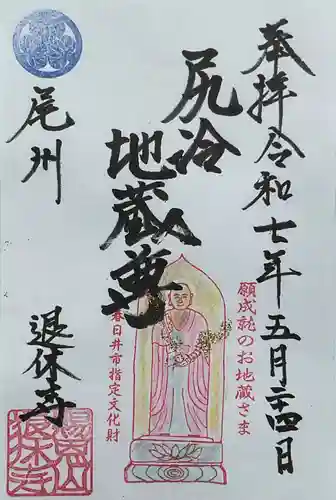 奉拝令和七年五月二十四日
尻冷
地蔵尊
願成就のお地蔵さま
春日井市指定文化財
尾州
退休寺